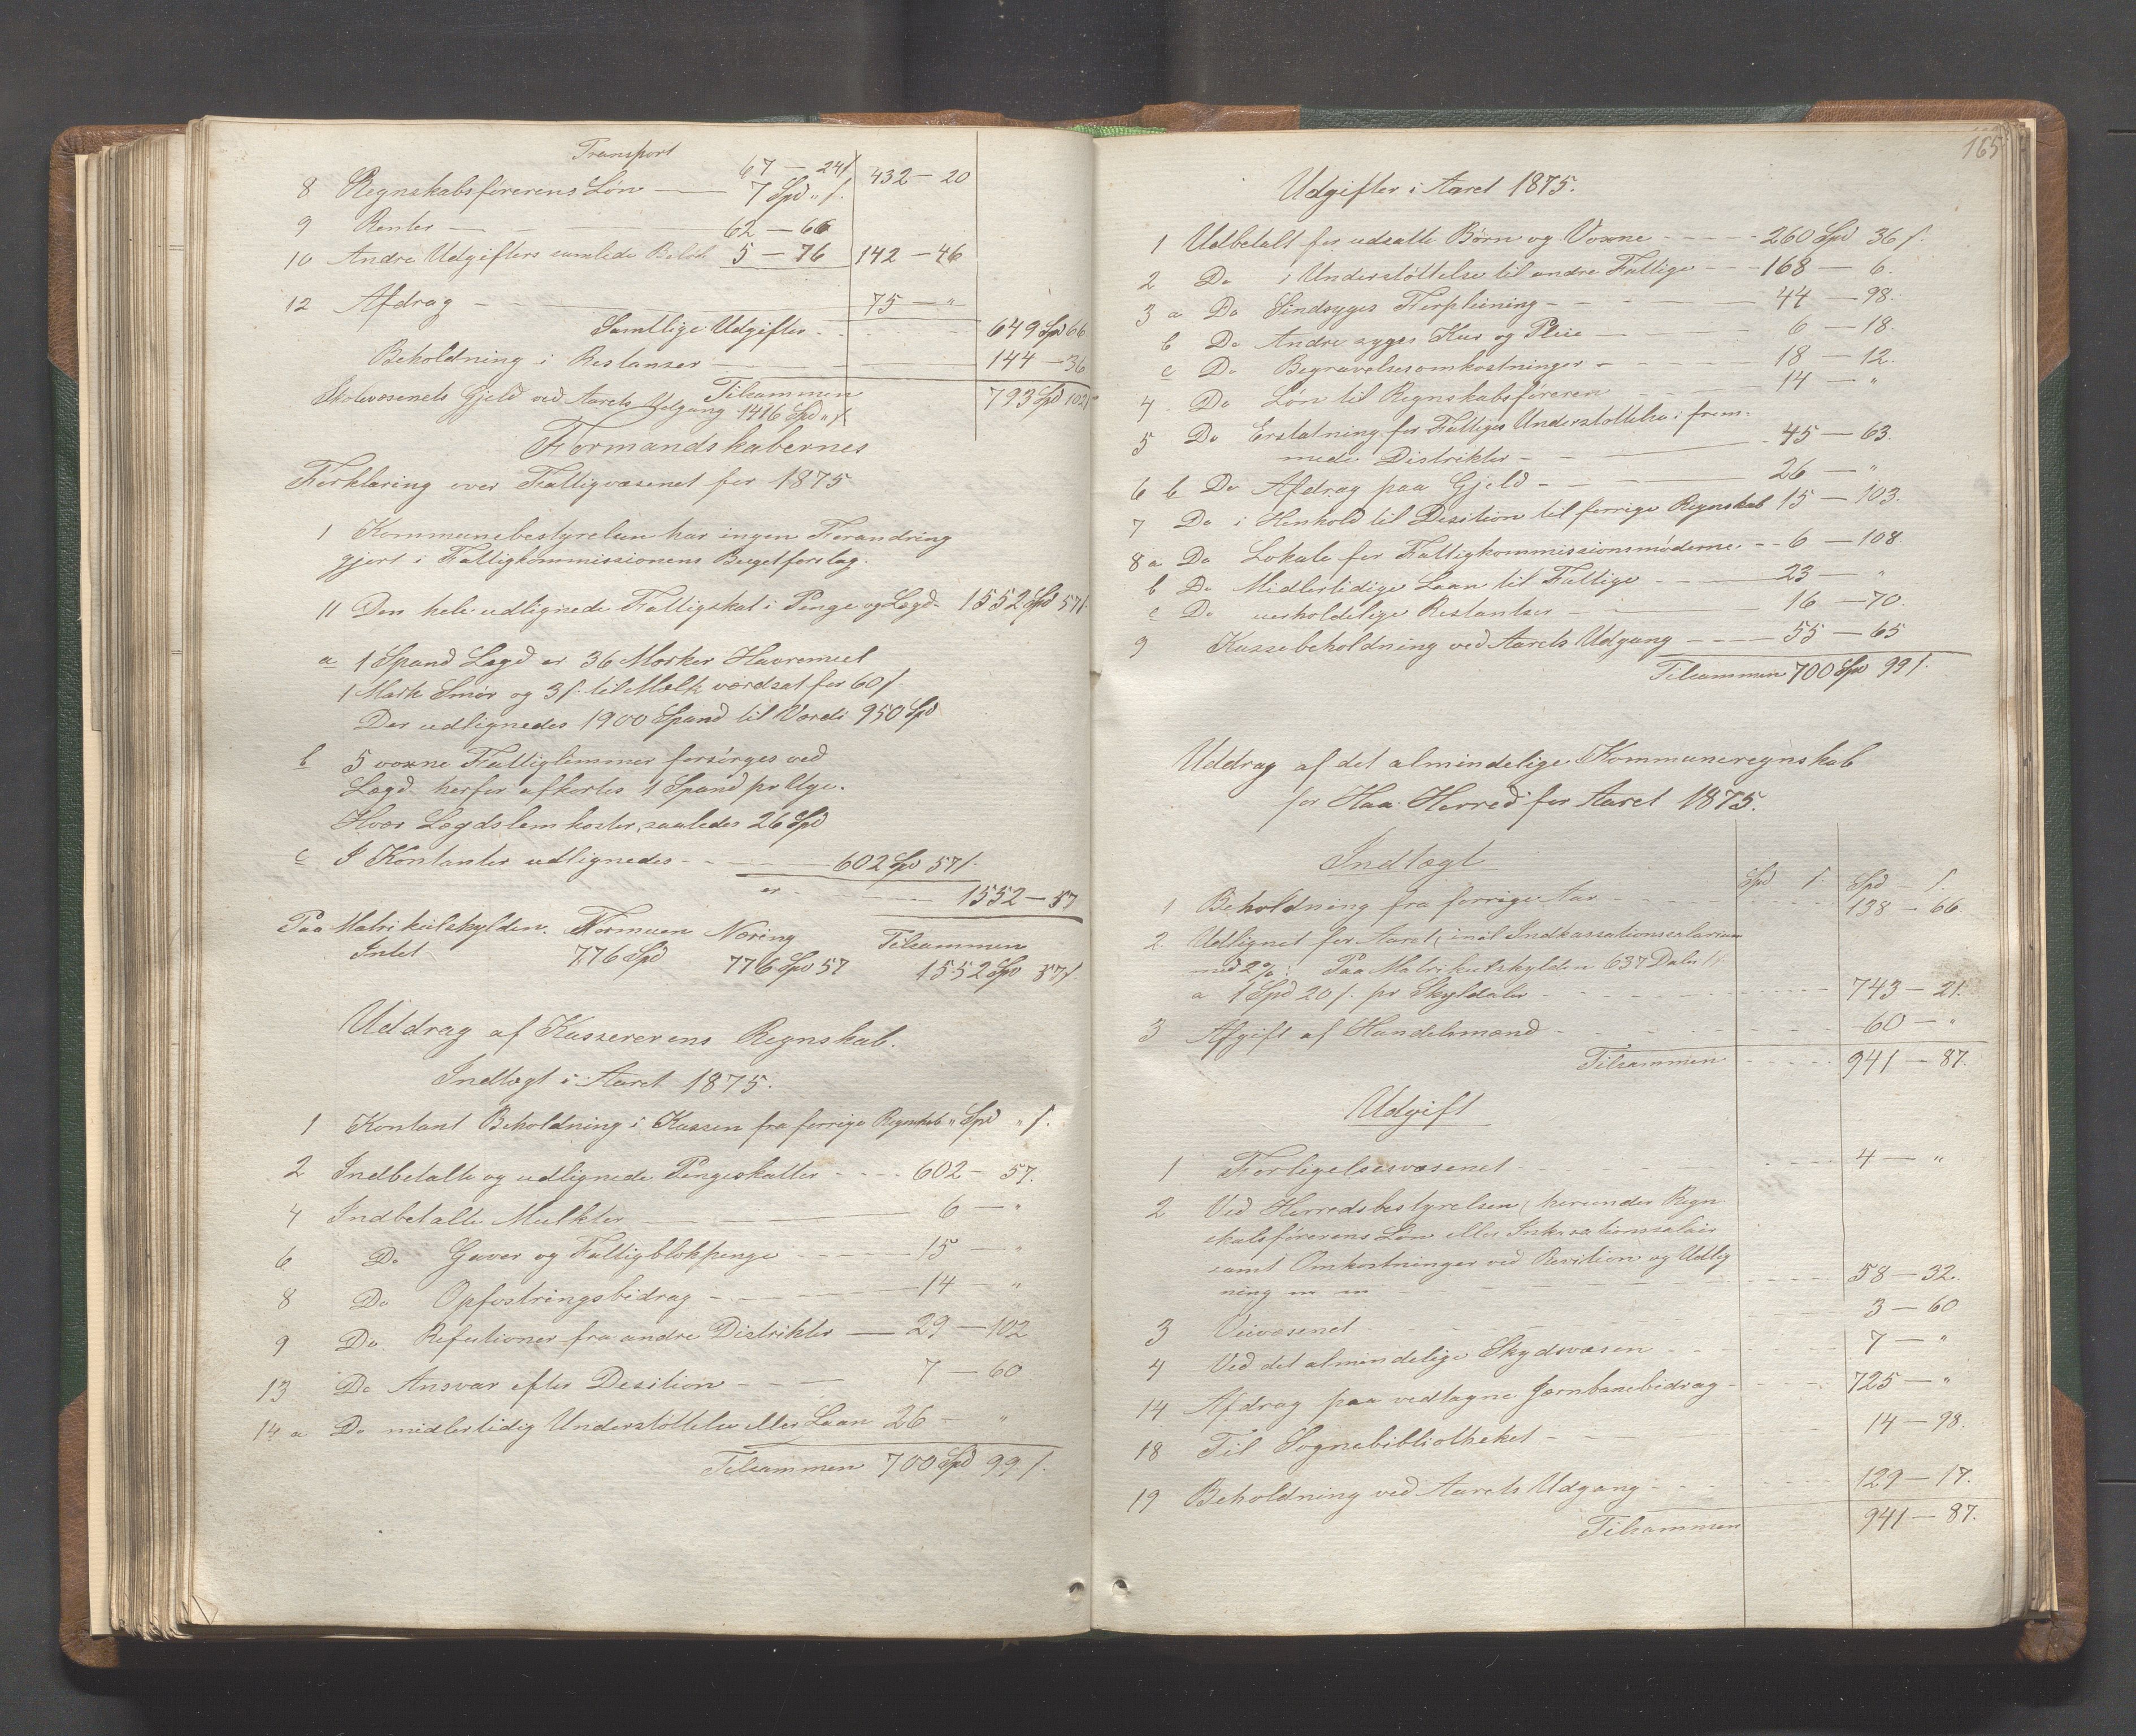 Transport 67 — 24 ſ 432 — 20
8 Regnskabsførerens Løn — 7 Spd „ ſ.
9 Renter — — 62 — 66
10 Andre Udgifters samlede Beløb 5 — 76 142 — 46
12 Afdrag — — 75 — „
Samtlige Udgifter - - 649 Spd 66
Beholdning i Restanser — 144 — 36
Tilsammen 793 Spd 102 ſ
Skolevæsenets Gjeld ved Aarets Udgang 1416 Spd „ ſ
Formandskabernes
Forklaring over Fattigvæsenet for 1875
1 Kommunebestyrelsen har ingen Forandring
gjort i Fattigkommissionens Bugetforslag.
11 Den hele udlignede Fattigskat i Penge og Lægd - 1552 Spd 57 ſ.
a 1 Spand Lægd er 36 Marker Havremeel
1 Mark Smør og 3 ſ. til Melk værdsat for 60 ſ.
Der udlignedes 1900 Spand til Værdi 950 Spd
b 5 voxne Fattiglemmer forsørges ved
Lægd. herfor afkortes 1 Spand pr Uge.
Hver Lægdslem koster saaledes 26 Spd
c I Kontanter udlignedes - - — 602 Spd 57 ſ.
er - — 1552 — 57
Paa Matrikulskylden. Formuen Næring Tilsammen
Intet 776 Spd 776 Spd 57 1552 Spd 57 ſ.
Uddrag af Kassererens Regnskab.
Indtægt i Aaret 1875.
1 Kontant Beholdning i Kassen fra forrige Regnskab „ Spd „ ſ.
2 Indbetalte og udlignede Pengeskatter - - - 602 — 57.
4 Indbetalte Mulkter — 6 — „
6 Do Gaver og Fattigblokpenge - - - 15 — „
8 Do Opfostringsbidrag - - - 14 — „
9 Do. Refutioner fra andre Distrikter — 29 — 102
13 Do Ansvar efter Desition - - — 7 — 60
14 a Do midlertidig Understøttelse eller Laan 26 — „
Tilsammen 700 Spd 99 ſ.
165
Udgifter i Aaret 1875.
1 Udbetalt for udsatte Børn og Voxne - - - - 260 Spd 36 ſ.
2 Do i Understøttelse til andre Fattige - - 168 — 6.
3 a Do Sindsyges Forpleining - - - 44 — 98.
b Do Andre syges Kur og Pleie — - - 6 — 18.
c Do Begravelsesomkostninger - - - 18 — 12.
4. Do Løn til Regnskabsføreren - - - 14 — „
5 Do Erstatning for Fattiges Understøttelse i frem-
mede Distrikter - - — 45 — 63.
6 b Do Afdrag paa Gjeld - - — 26 — „
7 Do i Henhold til Desition til forrige Regnskab 15 — 103.
8 a Do Lokale for Fattigkommissionsmøderne. - - 6 — 108
b Do Midlertidige Laan til Fattige - - — 23 — „
c Do uerholdelige Restantser — — 16 — 70.
9 Kassebeholdning ved Aarets Udgang - - - - 55 — 65
Tilsammen 700 Spd 99 ſ.
Uddrag af det almindelige Kommuneregnskab
for Haa Herred for Aaret 1875.
Indtægt
Spd ſ. Spd — ſ.
1 Beholdning fra forrige Aar - - - 138 — 66.
2. Udlignet for Aaret, incl Indkassationssalarium
med 2 %: Paa Matrikulskylden 637 Daler
a 1 Spd 20 ſ. pr Skyldaler - - - 743 — 21.
3 Afgift af Handelsmænd - - - 60 — „
Tilsammen - - - 941 — 87.
Udgift
1 Forligelsesvæsenet - - - 4 — „
2 Ved Herredsbestyrelsen, herunder Regn
skabsførerens Løn eller Inkassationssalair
samt Omkostninger ved Revition og Udlig
ning m m - - - 58 — 32.
3 Veivæsenet - - - 3 — 60
4 Ved det almindelige Skydsvæsen - - - 7 — „
14 Afdrag paa vedtagne Jærnbanebidrag - - - 725 — „
18 Til Sognebibliotheket - - - 14 — 98.
19 Beholdning ved Aarets Udgang - - - 129 — 17.
Tilsammen 941 — 87.